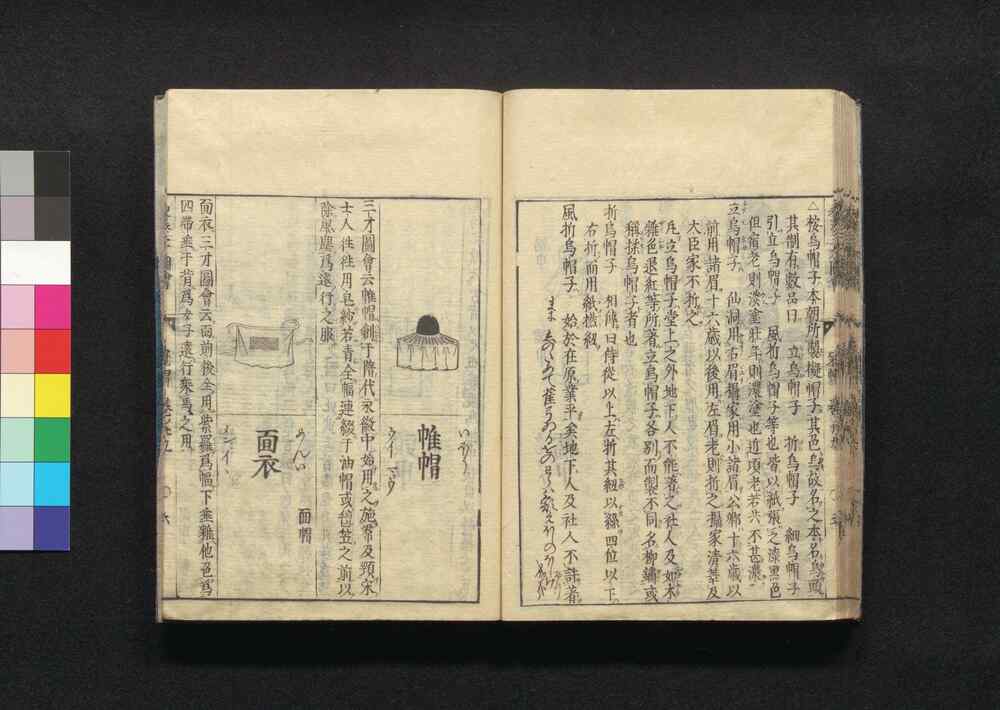 △按烏帽子本朝所製擬帽子其色烏故名之本名烏頭
其制有數品曰 立烏帽子 折烏帽子 細烏帽子
引立烏帽子 風折烏帽子等也皆以紙張之漆黑色
但宿老則淡塗壯年則濃塗也近頃老若共不甚濃
立烏帽子 仙洞用右眉攝家用小諸眉公卿十六歲以
前用諸眉十六歲以後用左眉老則折之攝家清華及
大臣家不折之
凡立烏帽子堂上之外地下人不能著之社人及如木
雜色退紅等所著立烏帽子各別而製不同名柳鏽或
稱揉烏帽子者也
折烏帽子 相傳曰侍從以上左折其紐以絲四位以下
右折而用紙撚紐
風折烏帽子 始於在原業平矣地下人及社人不許著
帷帽
三才圖會云帷帽創于隋代永徽中始用之施帬及頸宋
士人往往用皂紗若青全幅連綴于油帽或氊笠之前以
除風塵爲遠行之服
面衣
めんい
面帽
面衣三才圖會云面前後全用紫羅爲幅下垂雜他色爲
四帶垂于背爲女子遠行乘馬之用